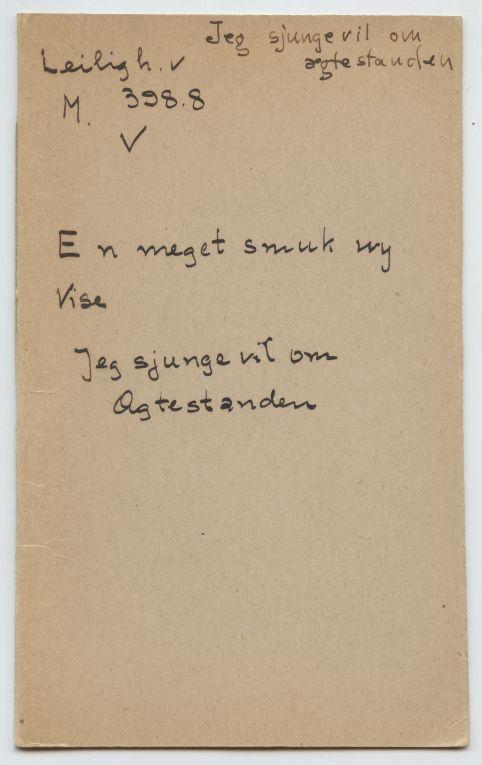 Jeg sjunge vil om
ægtestanden
Leiligh. v
M. 398.8
En meget smuk ny
Vise
Jeg sjunge vil om
Ægtestanden